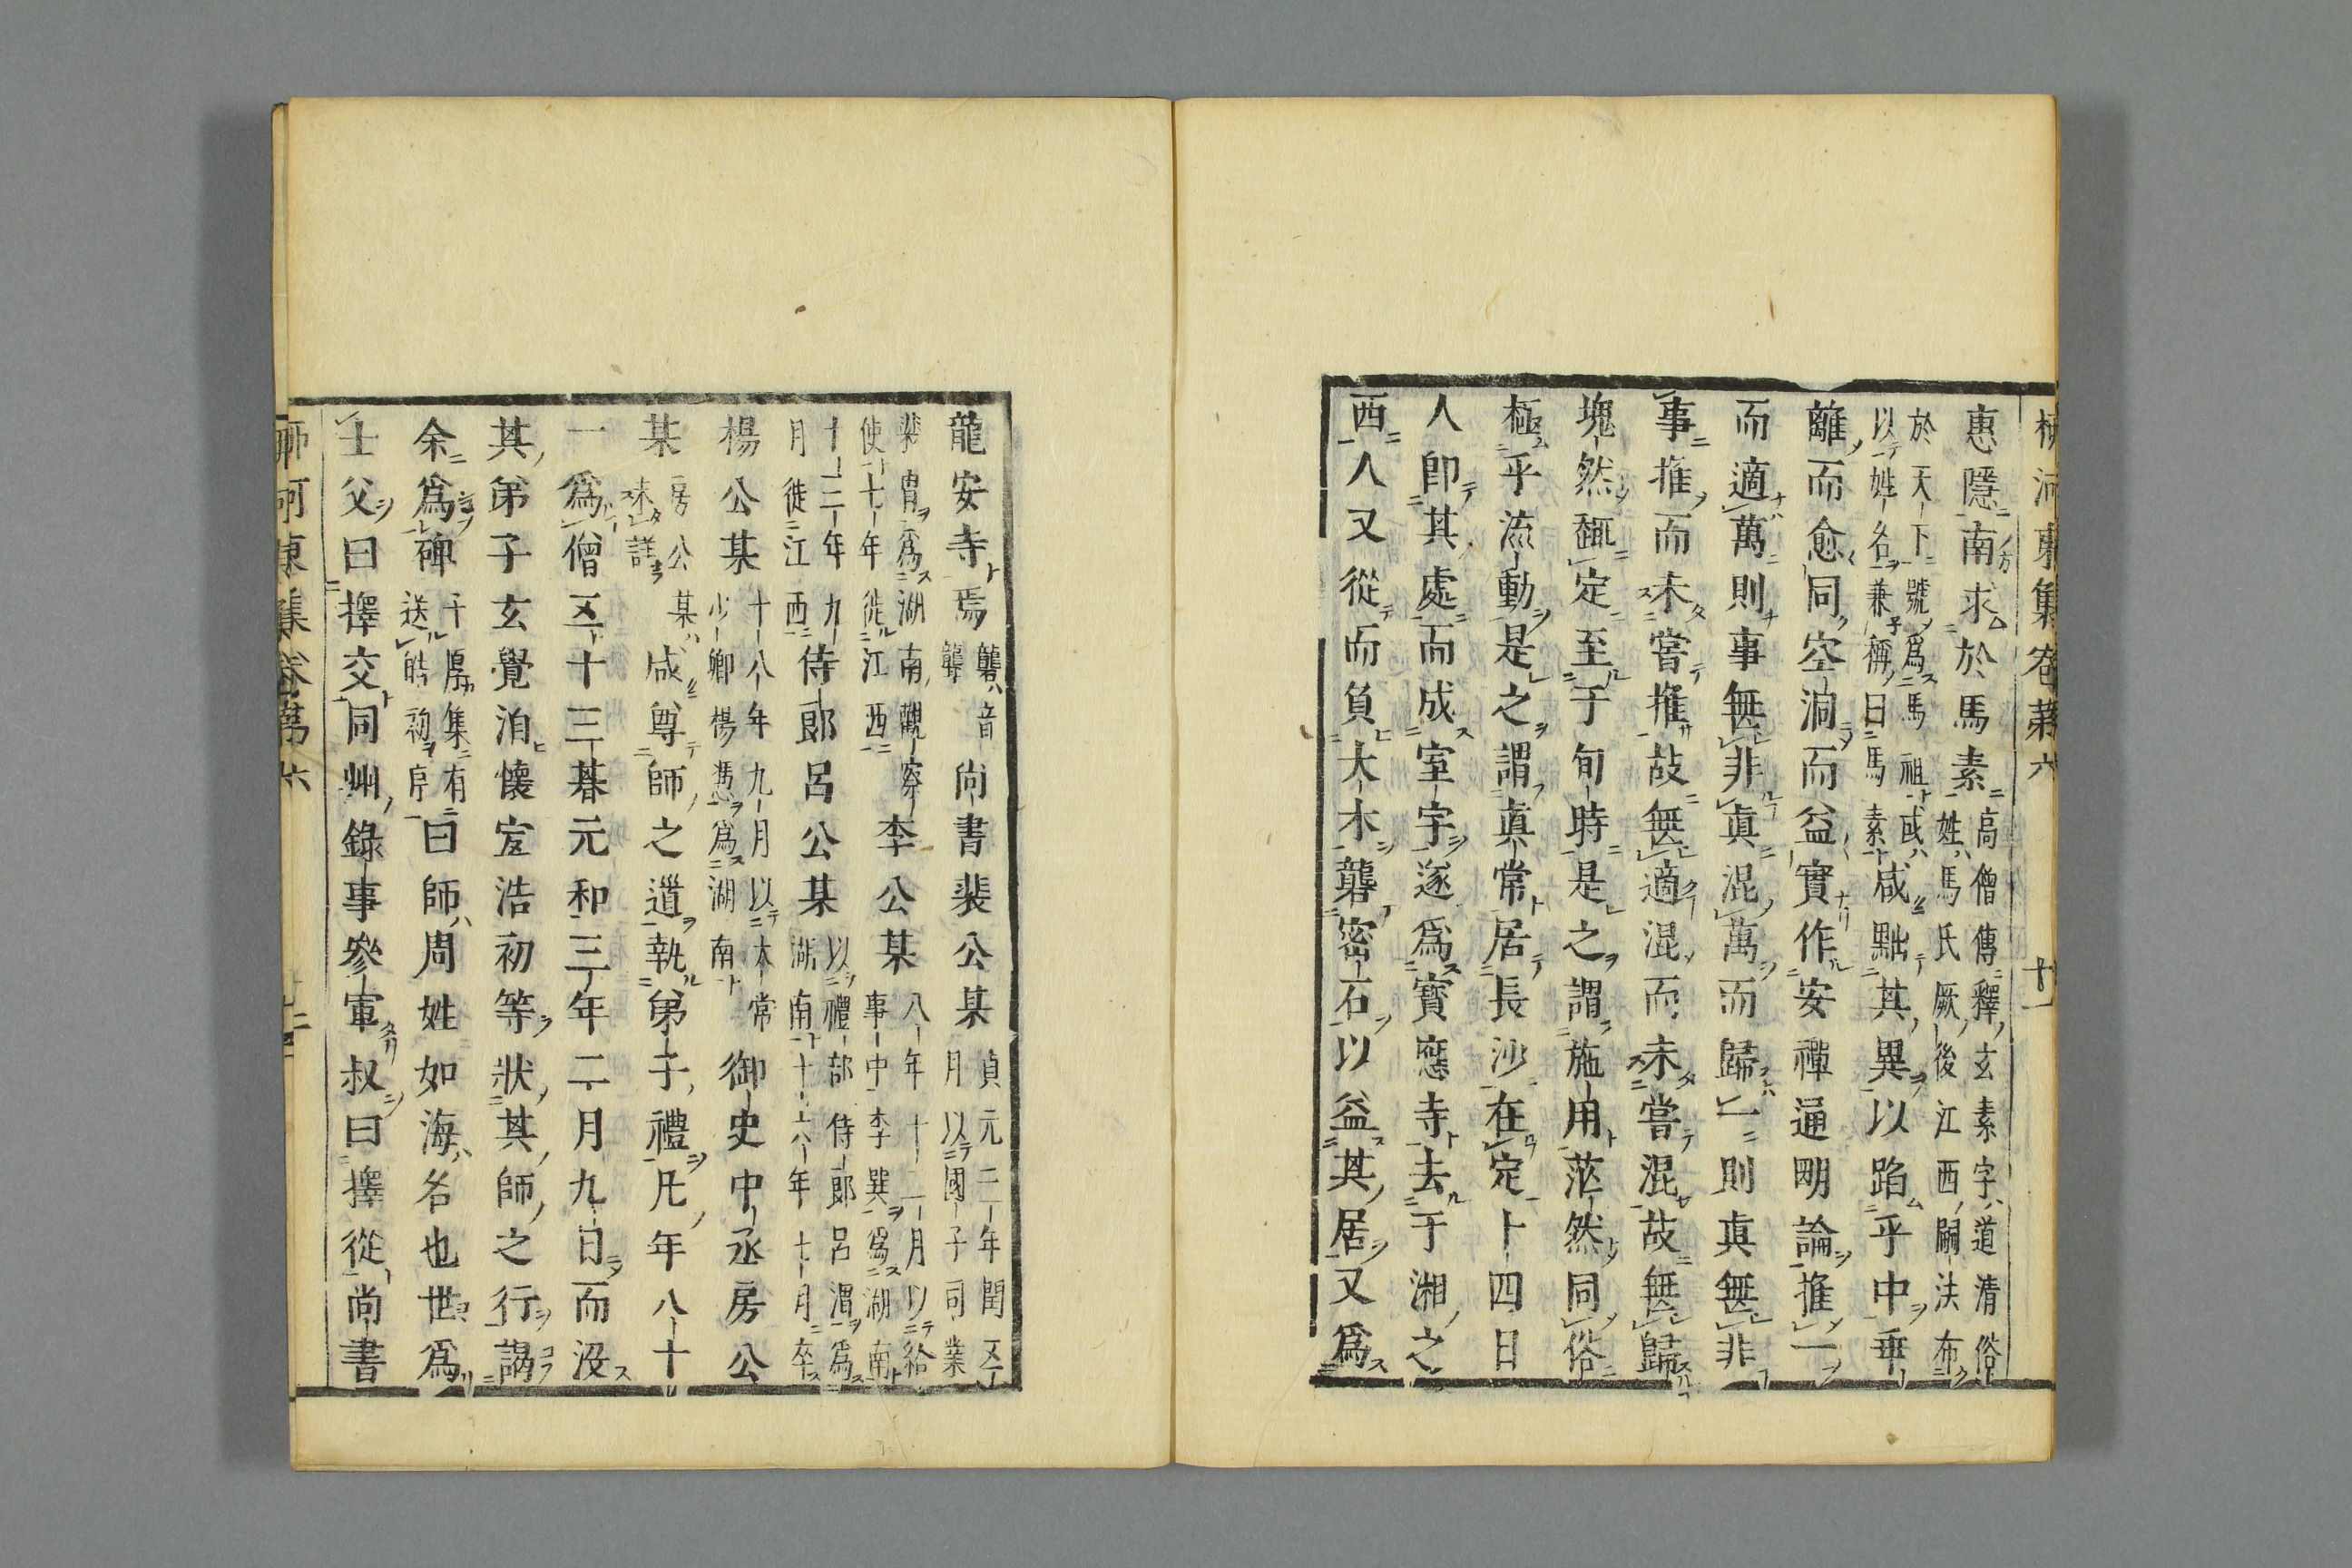 柳河東集卷第六 十一
惠隱南求於馬素
高僧傳釋玄素字道清俗
姓馬氏厥後江西嗣法布
於天下號爲馬祖或
以姓名兼稱曰馬素
咸黜其異以蹈乎中乖
離而愈同空洞而益實作安禪通明論推一
而適萬則事無非眞混萬而歸一則真無非
事推而未嘗推故無適混而未嘗混故無歸
塊然趣定至于旬時是之謂施用茫然同俗
極乎流動是之謂眞常居長沙在定十四日
人即其處而成室宇遂爲寶應寺去于湘之
西人又從而負大木礱密石以益其居又爲
龍安寺焉
礱音
聾
尚書裴公某
貞元二年閏五
月以國子司業
裴胄爲湖南觀察
使七年徙江西
李公某
八年十二月以給
事中李巽爲湖南
十二年九
月徙江西
侍郎呂公某
以禮部侍郎呂渭爲
湖南十六年七月卒
楊公某
十八年九月以太常
少卿楊憑爲湖南
御史中丞房公
某
房公某
未詳
咸尊師之道執弟子禮凡年八十
一爲僧五十三朞元和三年二月九日而沒
其弟子玄覺洎懷㝎浩初等狀其師之行謁
余爲碑
子厚集有
送皓初序
曰師周姓如海名也世爲
士父曰擇交同州錄事參軍叔曰擇從尚書
柳河東集卷第六 十二